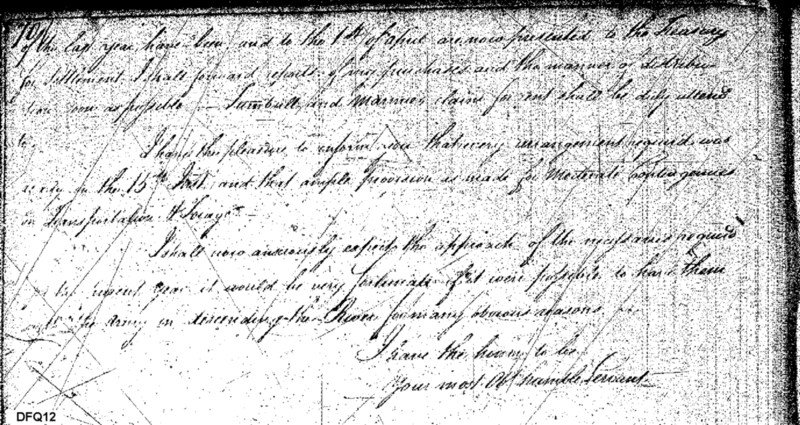 of the last year, have been, and to the 1st of April are now presented to the Treasury
for Settlement I shall forward reports of my purchases and the manner of distribu
tion soon as possible — and claims for rent shall be duly attend
I have the pleasure to inform you that every arrangement required was
ready on the 15th Inst. and that ample provision is made for Moderate Contingencies
in Transportation & Forage —
I shall now anxiously expect the approach of the necessaries required
present year it would be very fortunate if it were possible to have them
the Army in descending the River for many obvious reasons
I have the honor to be
Your most Obt humble Servant
DFQ12